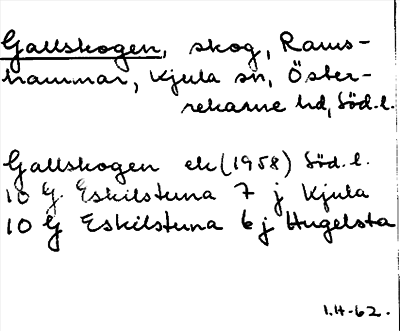 Gallskogen, skog, Rams-
hammar, Kjula sn, Öster-
rekarne hd, Söd.l.
Gallskogen ek (1958) Söd.l.
10 G Eskilstuna 7 j Kjula
10 G Eskilstuna 6 j Hugelsta
1.H-62.